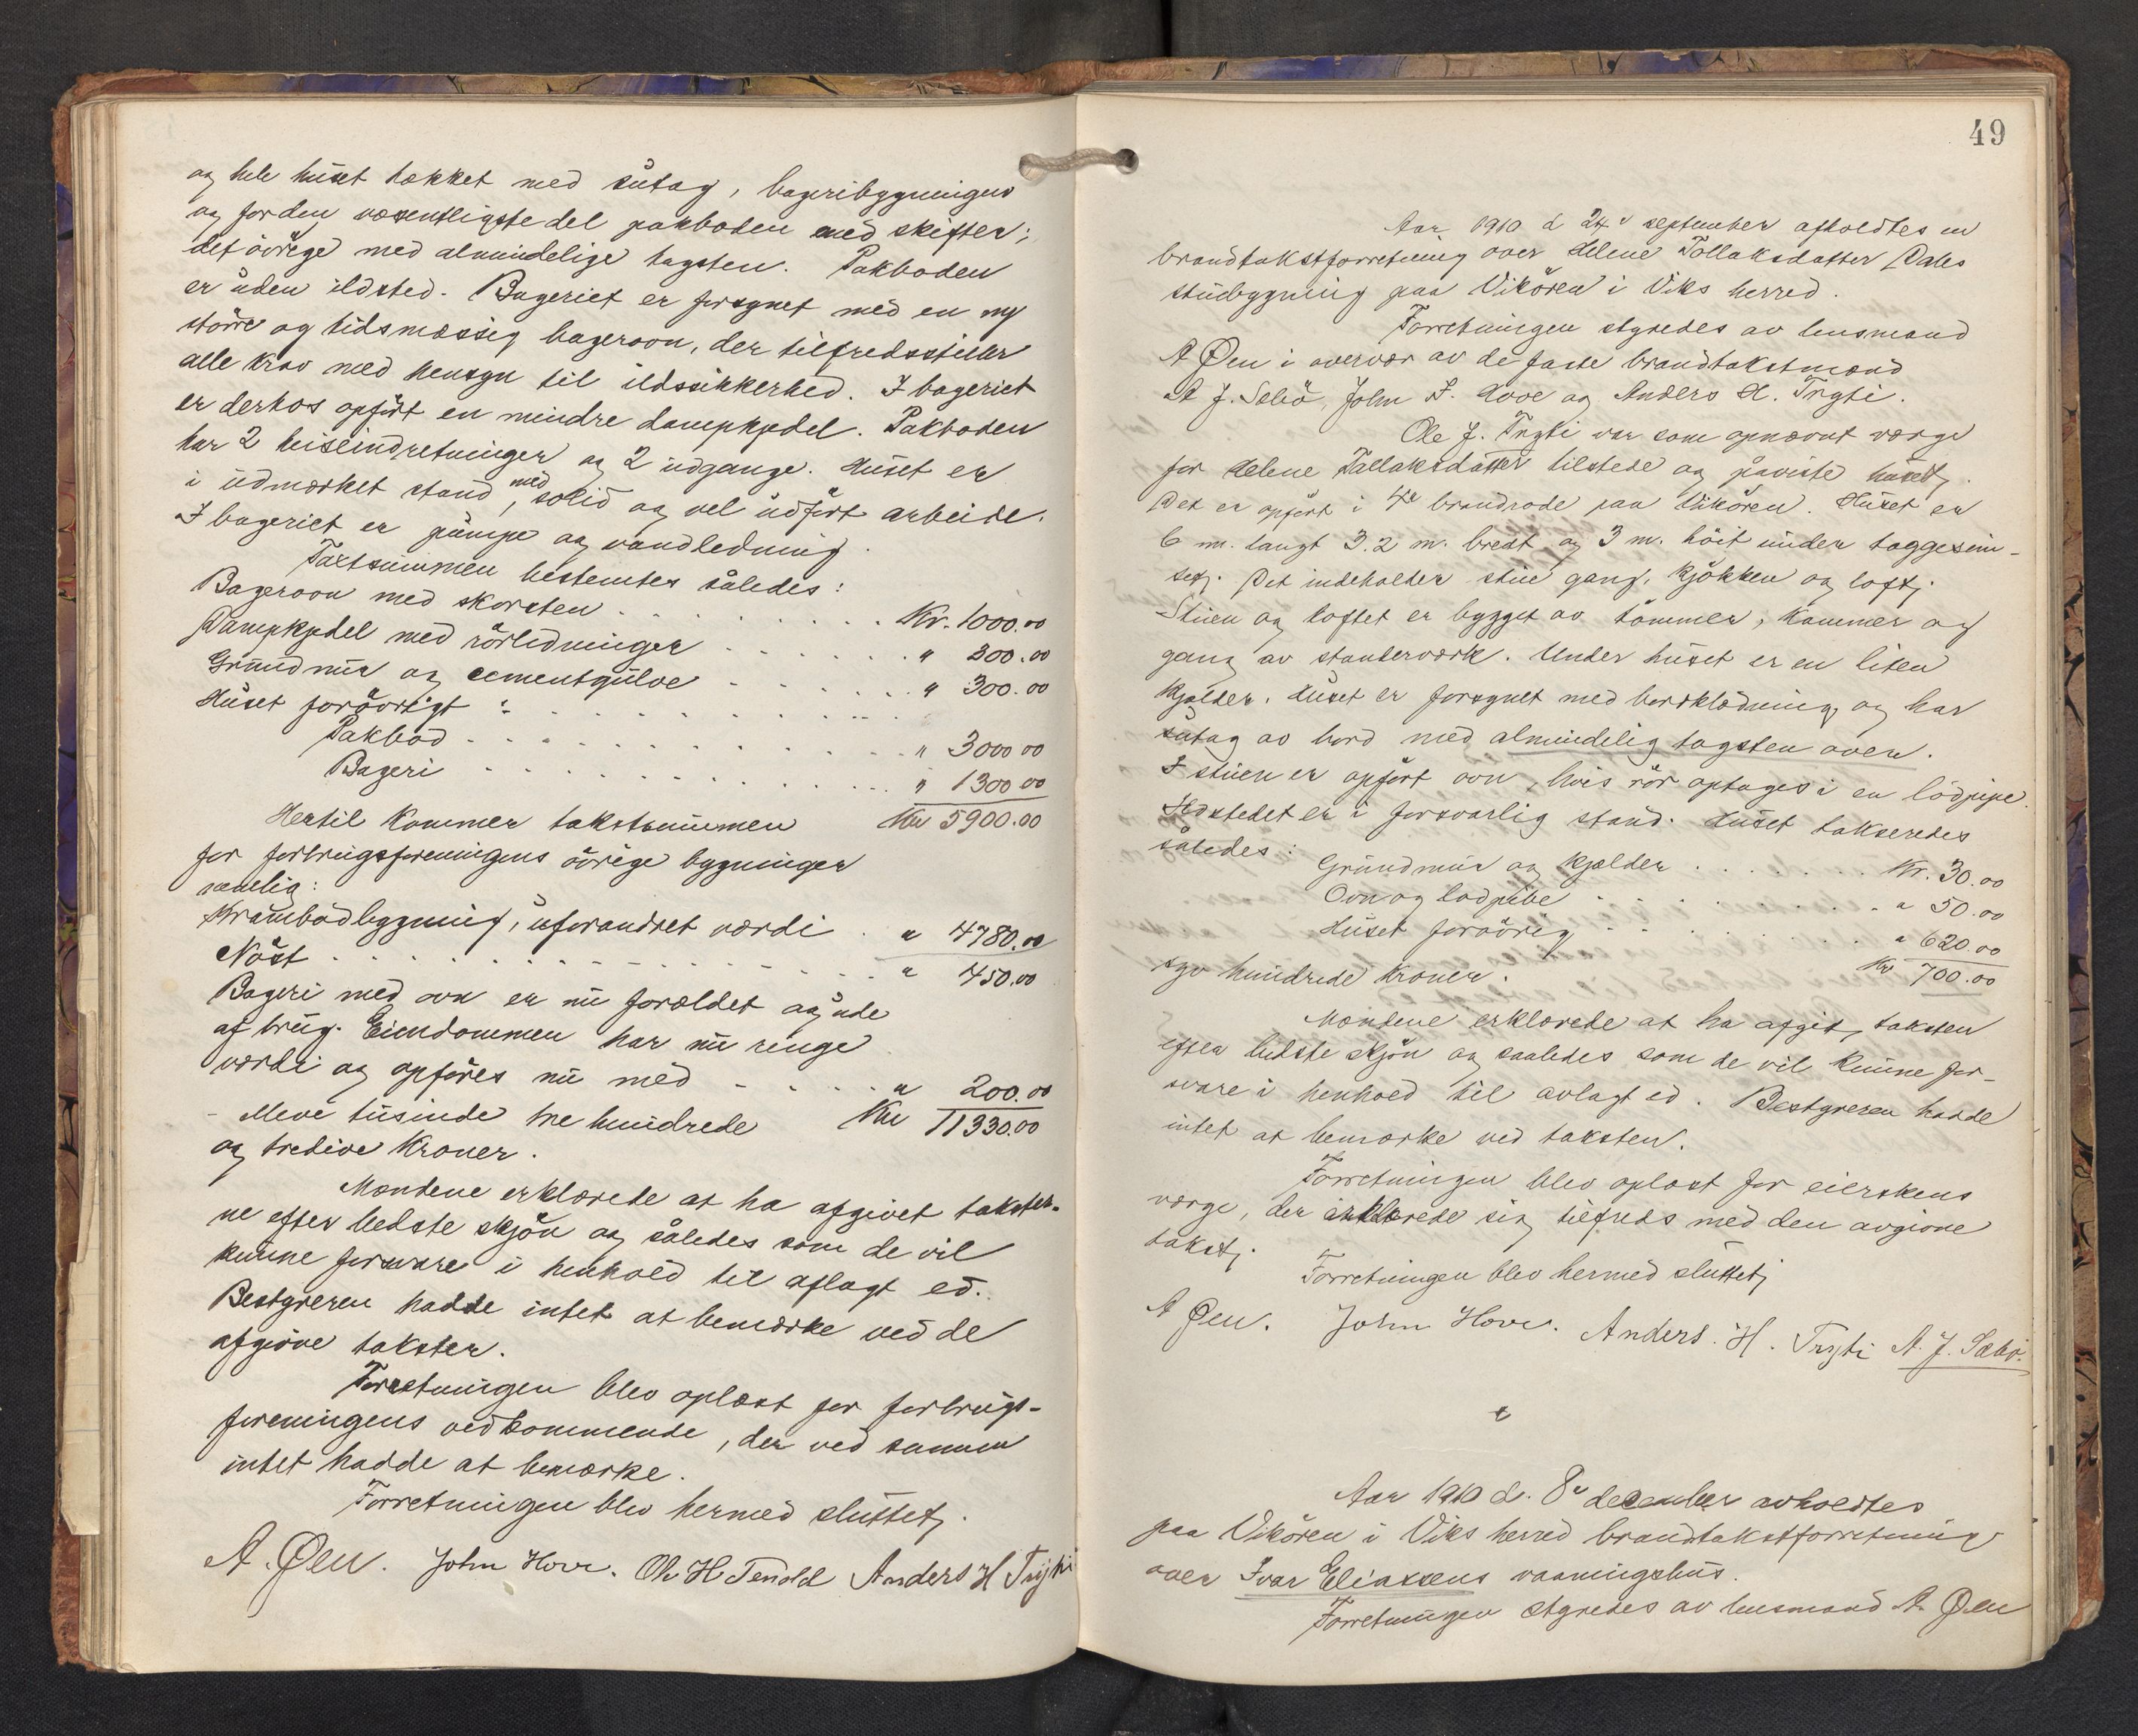 og hele huset tækket med sutag, bageribygningen
og for den væsentligste del pakboden med skifter;
det övrige med almindelige tagsten. Pakboden
er uden ildsted. Bageriet er forsynet med en ny
större og tidsmæssig bagerovn, der tilfredsstiller
alle krav med hensyn til ildssikkerhed. I bageriet
er derhos opfört en mindre dampkjedel. Pakboden
har 2 heiseindretninger og 2 udgange. Huset er
i udmærket stand, med solid og vel udfört arbeide.
I bageriet er pumpe og vandledning.
Taxtsummen bestemtes således:
Bagerovn med skorsten . . . . . . . Kr. 1000.00
Dampkjedel med rörledninger . . . . . . " 300.00
Grundmur og cementgulve . . . . . . " 300.00
Huset forövrigt : . . . . . . .
Pakbod . . . . . . . . . " 3000 00
Bageri . . . . . . . . . " 1300 00
Hertil kommer takstsummen Kr 5900.00
for forbrugsforeningens övrige bygninger
nemlig:
Krambodbygning, uforandret værdi . " 4780.00
Nöst . . . . . . . . . . " 450.00
Bageri med ovn er nu forældet og ude
af brug. Eiendommen har nu ringe
værdi og opföres nu med . . . . " 200.00
- Elleve tusinde tre hundrede Kr 11330.00
og tredive Kroner.
Mændene erklærede at ha afgivet takster-
ne efter bedste skjön og således som de vil
kunne forsvare i henhold til aflagt ed.
Bestyreren hadde intet at bemærke ved de
afgivne takster.
Forretningen blev oplæst for forbrugs-
foreningens vedkommende, der ved samme
intet hadde at bemærke.
Forretningen blev hermed sluttet.
A. Øen. John Hove. Ole H Tenold Anders H Tryti
49
Aar 1910 d 24de september afholdtes en
brandtakstforretning over Helene Tollaksdatter Dales
stuebygning paa Vikören i Viks herred.
Forretningen styredes av lensmand
A Øen i overvær av de faste brandtakstmænd
A J. Sebö, John I. Hove og Anders H. Tryti.
Ole J. Tryti var som opnævnt værge
for Helene Tallaksdatter tilstede og påviste huset.
Det er opfört i 4de brandrode paa Vikören. Huset er
6 m. langt 3.2 m. bredt og 3 m. höit under taggesim-
set. Det indeholder stue gang, kjökken og loft.
Stuen og loftet er bygget av tömmer, kammer og
gang av standerværk. Under huset er en liten
kjelder. Huset er forsynet med bordklædning og har
sutag av bord med almindelig tagsten over.
I stuen er opfört ovn, hvis rör optages i en lödpipe.
Ildstedet er i forsvarlig stand. Huset takseredes
således:
Grundmur og kjelder . . . . . . Kr. 30.00
Ovn og lodpibe . . . . . . . " 50.00
Huset forövrig . . . . . . . " 620.00
syv hundrede kroner. Kr 700.00
Mændene erklærede at ha afgit taksten
efter bedste skjön og saaledes som de vil kunne for-
svare i henhold til avlagt ed. Bestyreren hadde
intet at bemærke ved taksten.
Forretningen blev oplæst for eierskens
værge, der erklærede sig tilfreds med den avgivne
takst.
Forretningen blev hermed sluttet
A Øen. John Hove. Anders. H. Tryti A. J. Sæbö.
Aar 1910 d. 8de december avholdtes
paa Vikören i Viks herred brandtakstforretning
over Ivar Eliassens vaaningshus.
Forretningen styredes av lensmand A. Øen